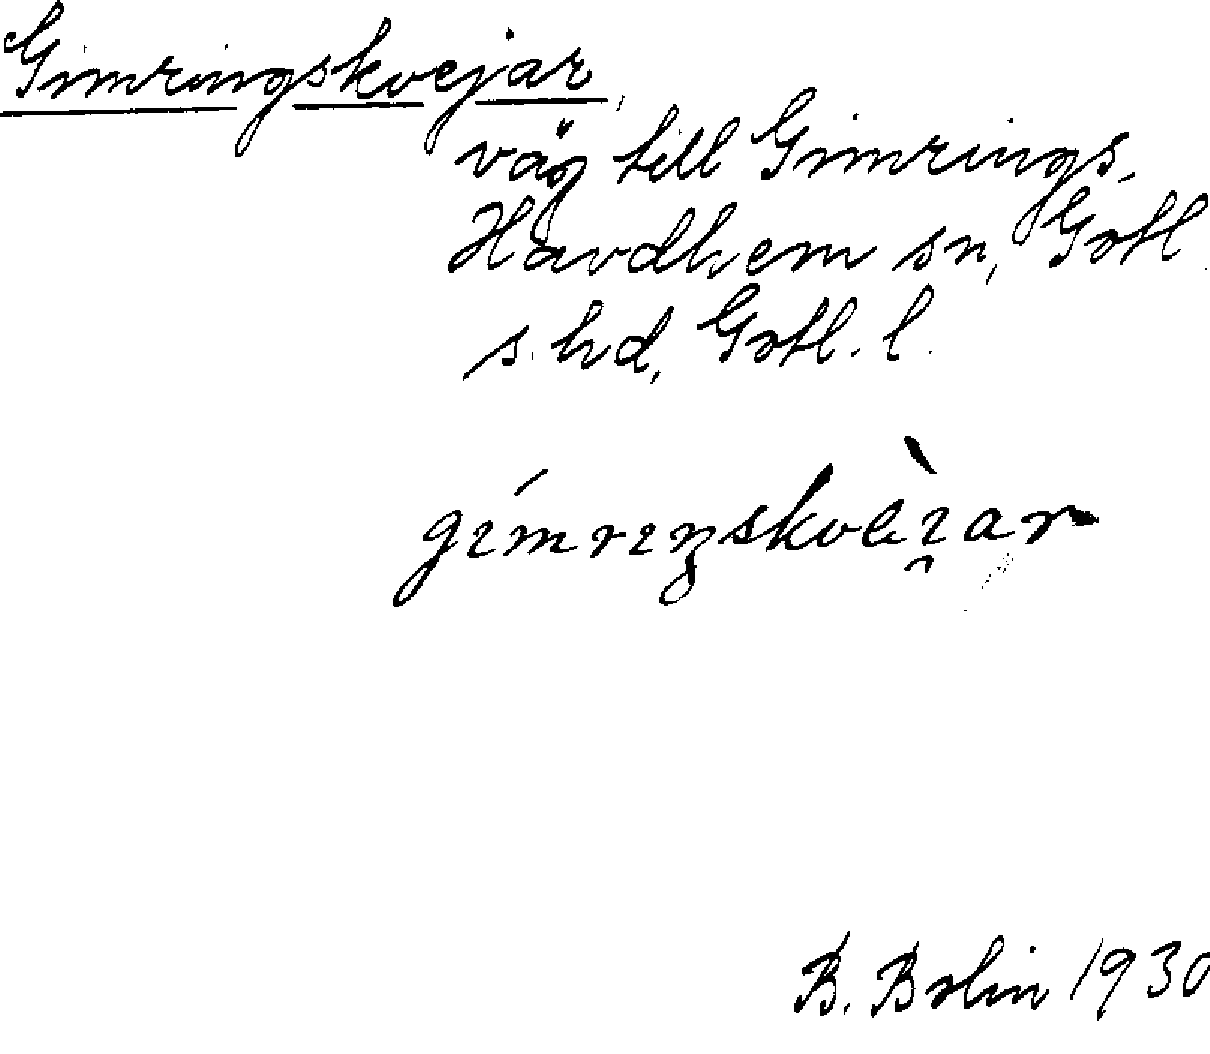 Gimringskvejar,
väg till Gimrings,
Havdhem sn, Gotl.
s. hd, Gotl. l.
gímrıŋskvèı̯ar
B. Bolin 1930